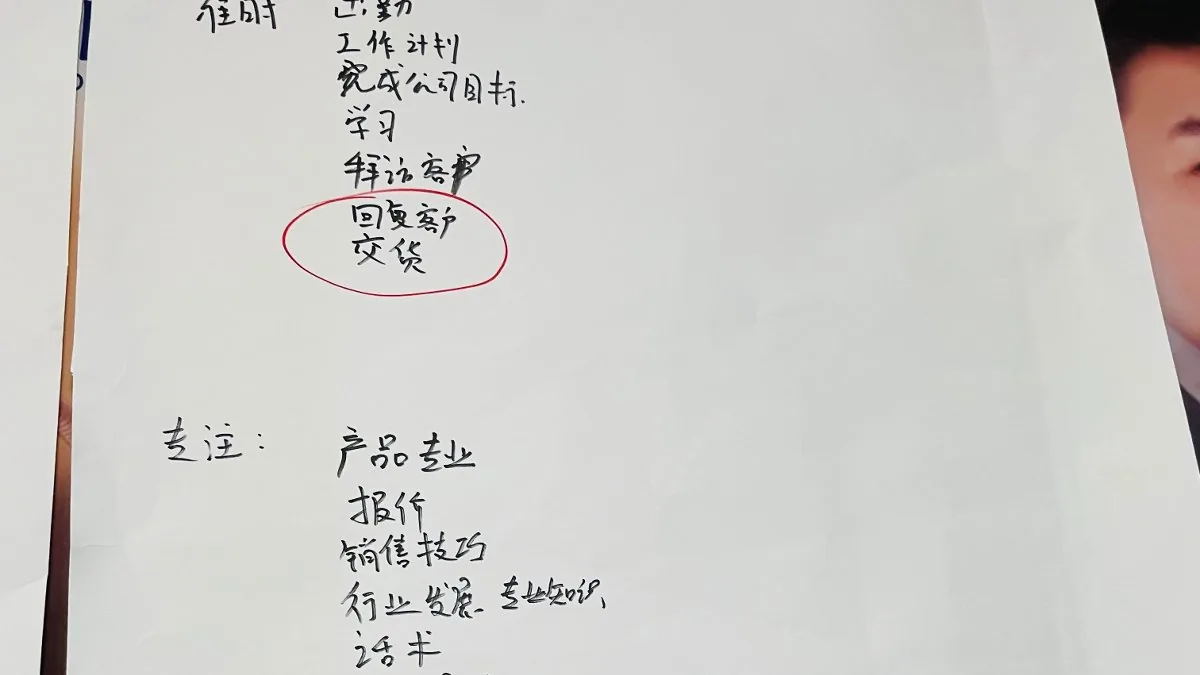 准时 出勤
工作计划
完成公司目标.
学习
拜访客户
回复客户
交货
专注: 产品专业
报价
销售技巧
行业发展、专业知识、
话术